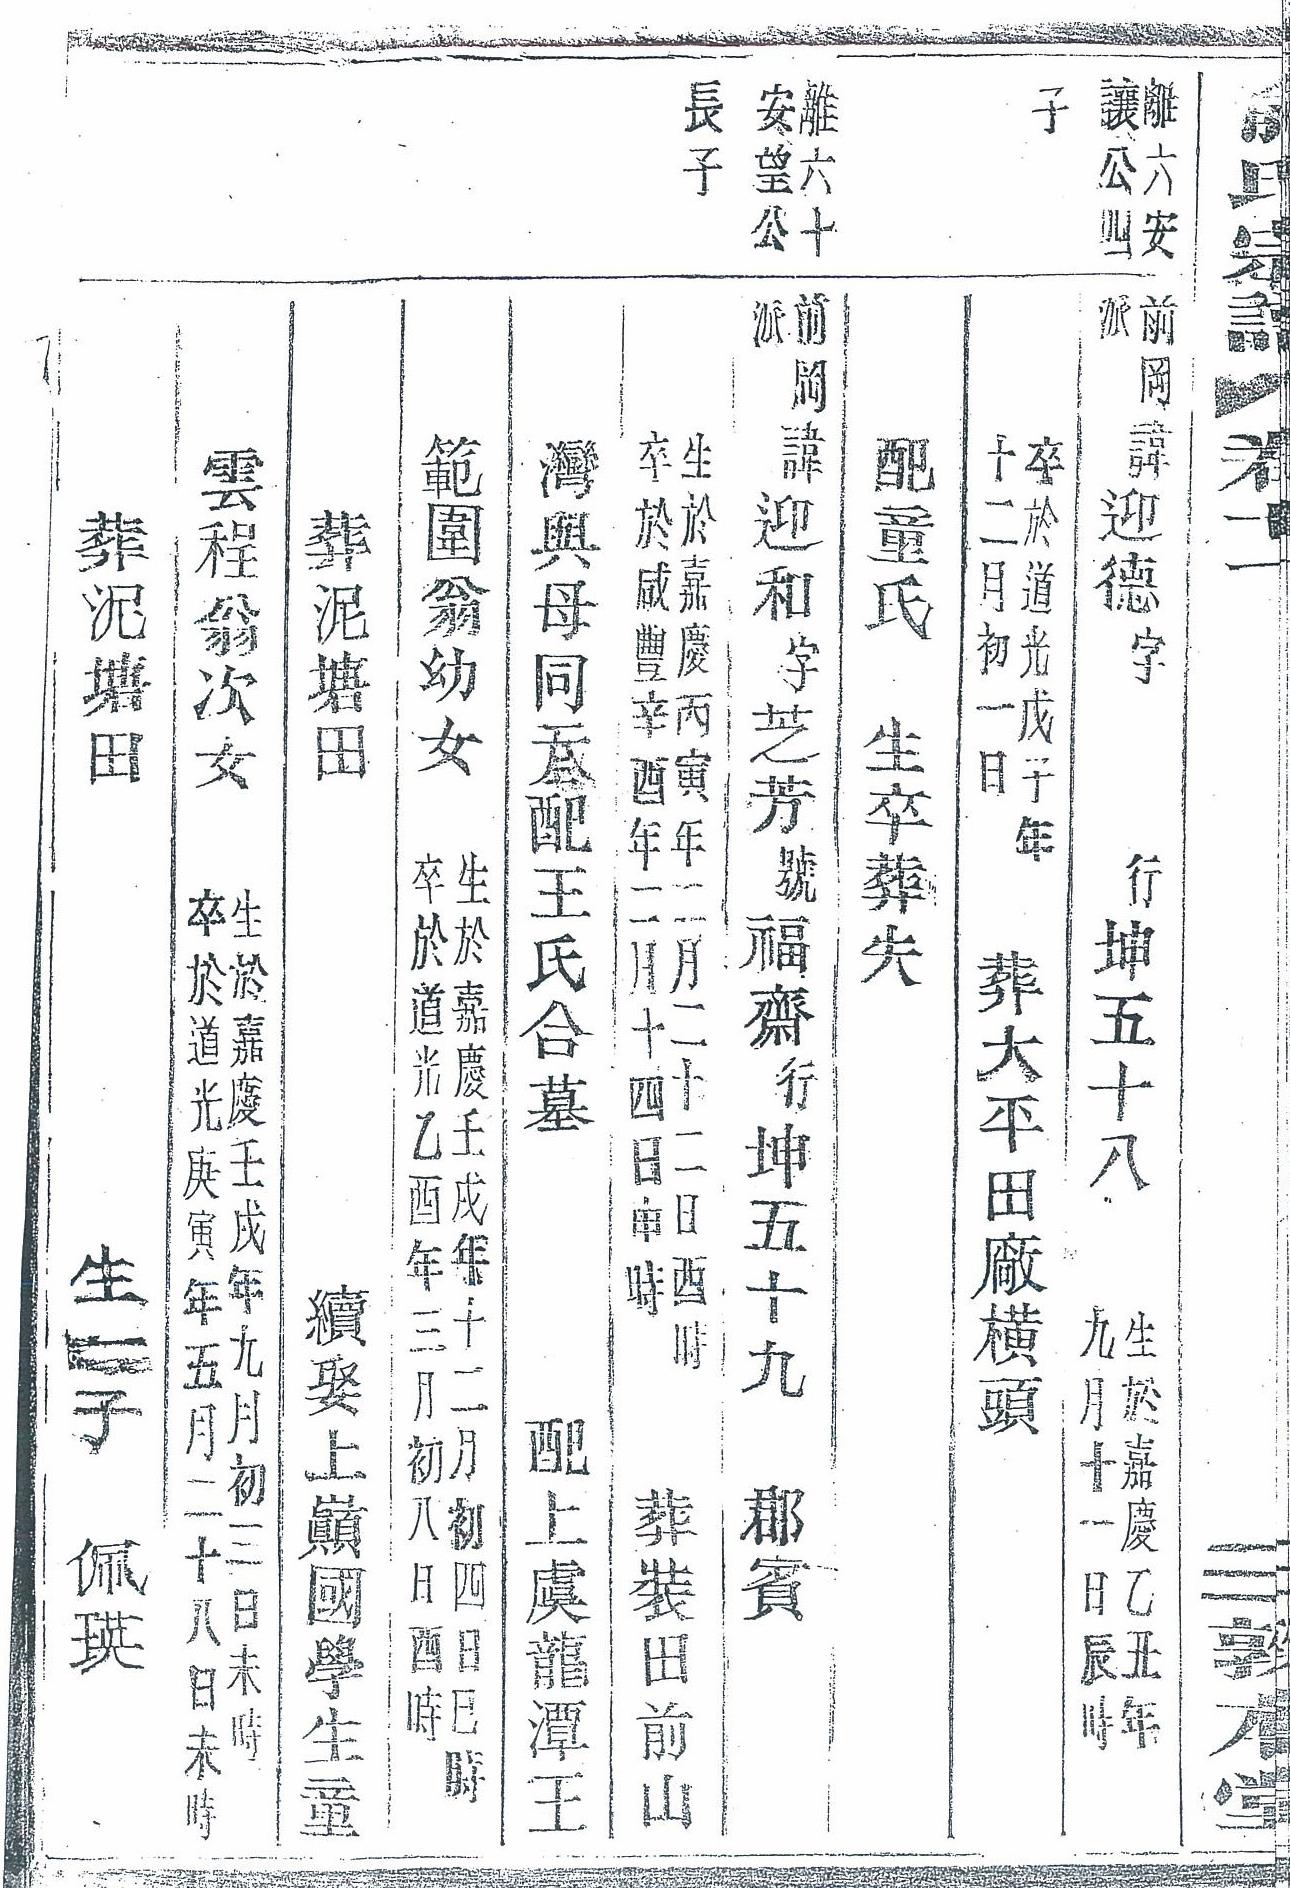 氏宗譜 卷二
離六安
讓公四
子
前岡
派
諱迎德字 行坤五十八
生於嘉慶乙丑年
九月十一日辰時
卒於道光戊子年
十二月初一日
葬大平田廠橫頭
配童氏 生卒葬失
離六十
安望公
長子
前岡
派
諱迎和字芝芳號福齋行坤五十九 郡賓
生於嘉慶丙寅年二月二十二日酉時
卒於咸豐辛酉年二月十四日申時
葬裝田前山
灣與母同㡳配王氏合墓 配上虞龍潭王
範圍翁幼女
生於嘉慶壬戌年十二月初四日巳時
卒於道光乙酉年三月初八日酉時
葬泥塘田 續娶上巔國學生童
雲程翁次女
生於嘉慶壬戌年九月初三日未時
卒於道光庚寅年五月二十八日未時
葬泥塘田 生子 佩瑛
敦本堂